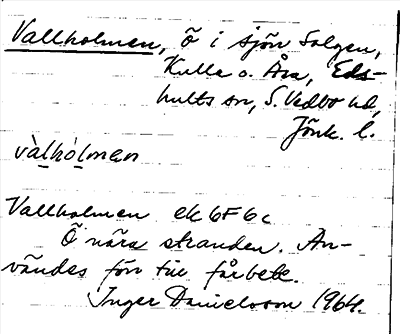 Vallholmen, Ö i sjön Solgen,
Kulla o. Åsa, Eds-
hults sn, S. Vedbo hd,
Jönk. l.
vàlhòlmen
Vallholmen ek 6F6c
Ö nära stranden. An-
vändes förr till fårbete.
Inger Danielsson 1964.